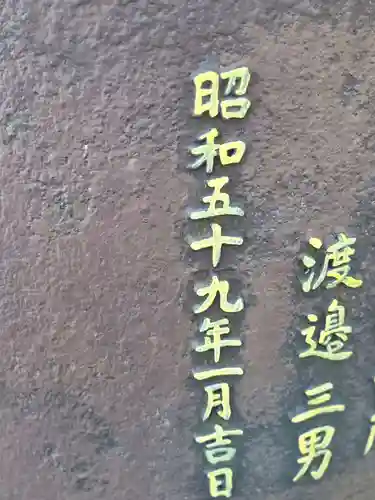 渡邉三男
昭和五十九年一月吉日